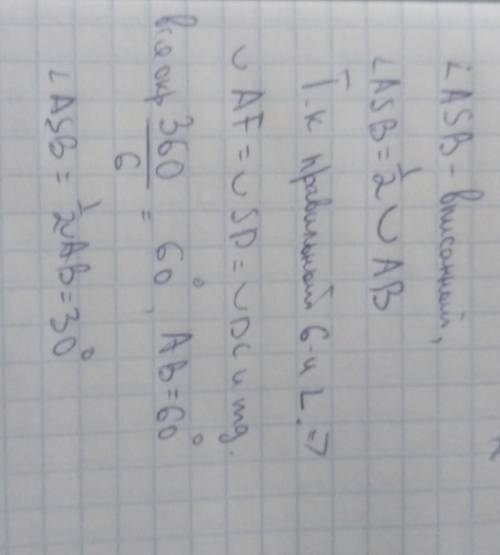 ∠ASB - вписанный,
∠ASB = 1/2 ◡ AB
Т.к правильный 6-и ∠. =>
◡ AF = ◡ SD = ◡ DC и тд.
вся окр 360/6 = 60°, AB = 60°
∠ASB = 1/2 AB = 30°